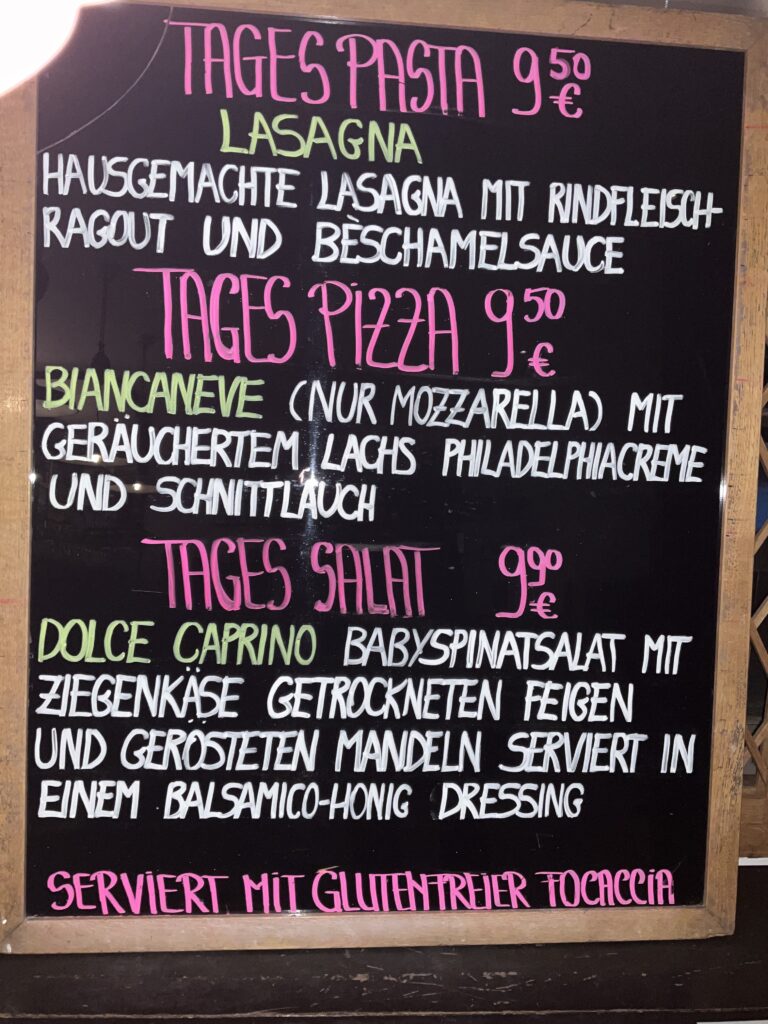 TAGES PASTA 9 50 €
LASAGNA
HAUSGEMACHTE LASAGNA MIT RINDFLEISCH-
RAGOUT UND BÈSCHAMELSAUCE
TAGES PIZZA 9 50 €
BIANCANEVE (NUR MOZZARELLA) MIT
GERÄUCHERTEM LACHS PHILADELPHIACREME
UND SCHNITTLAUCH
TAGES SALAT 9 90 €
DOLCE CAPRINO BABYSPINATSALAT MIT
ZIEGENKÄSE GETROCKNETEN FEIGEN
UND GERÖSTETEN MANDELN SERVIERT IN
EINEM BALSAMICO-HONIG DRESSING
SERVIERT MIT GLUTENFREIER FOCACCIA